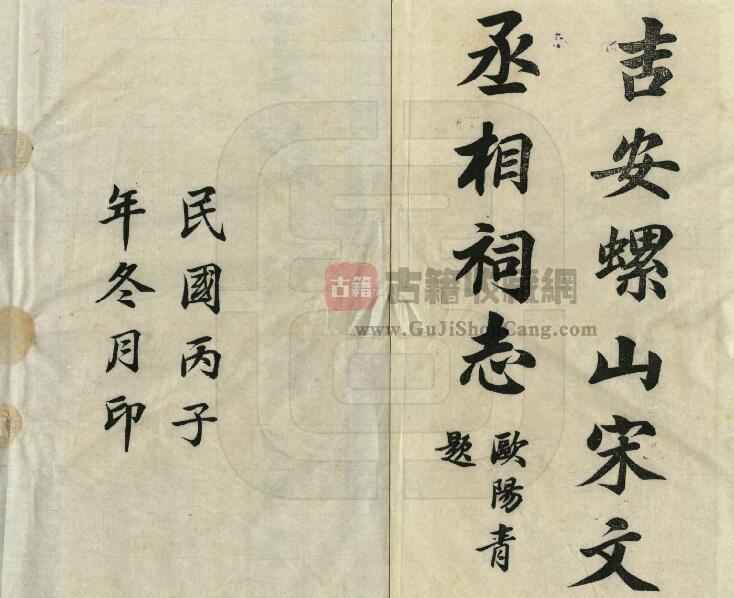 吉安螺山宋文
丞相祠志
歐陽青
題
民國丙子
年冬月印
古籍
古籍收藏網
www.GuJiShouCang.com